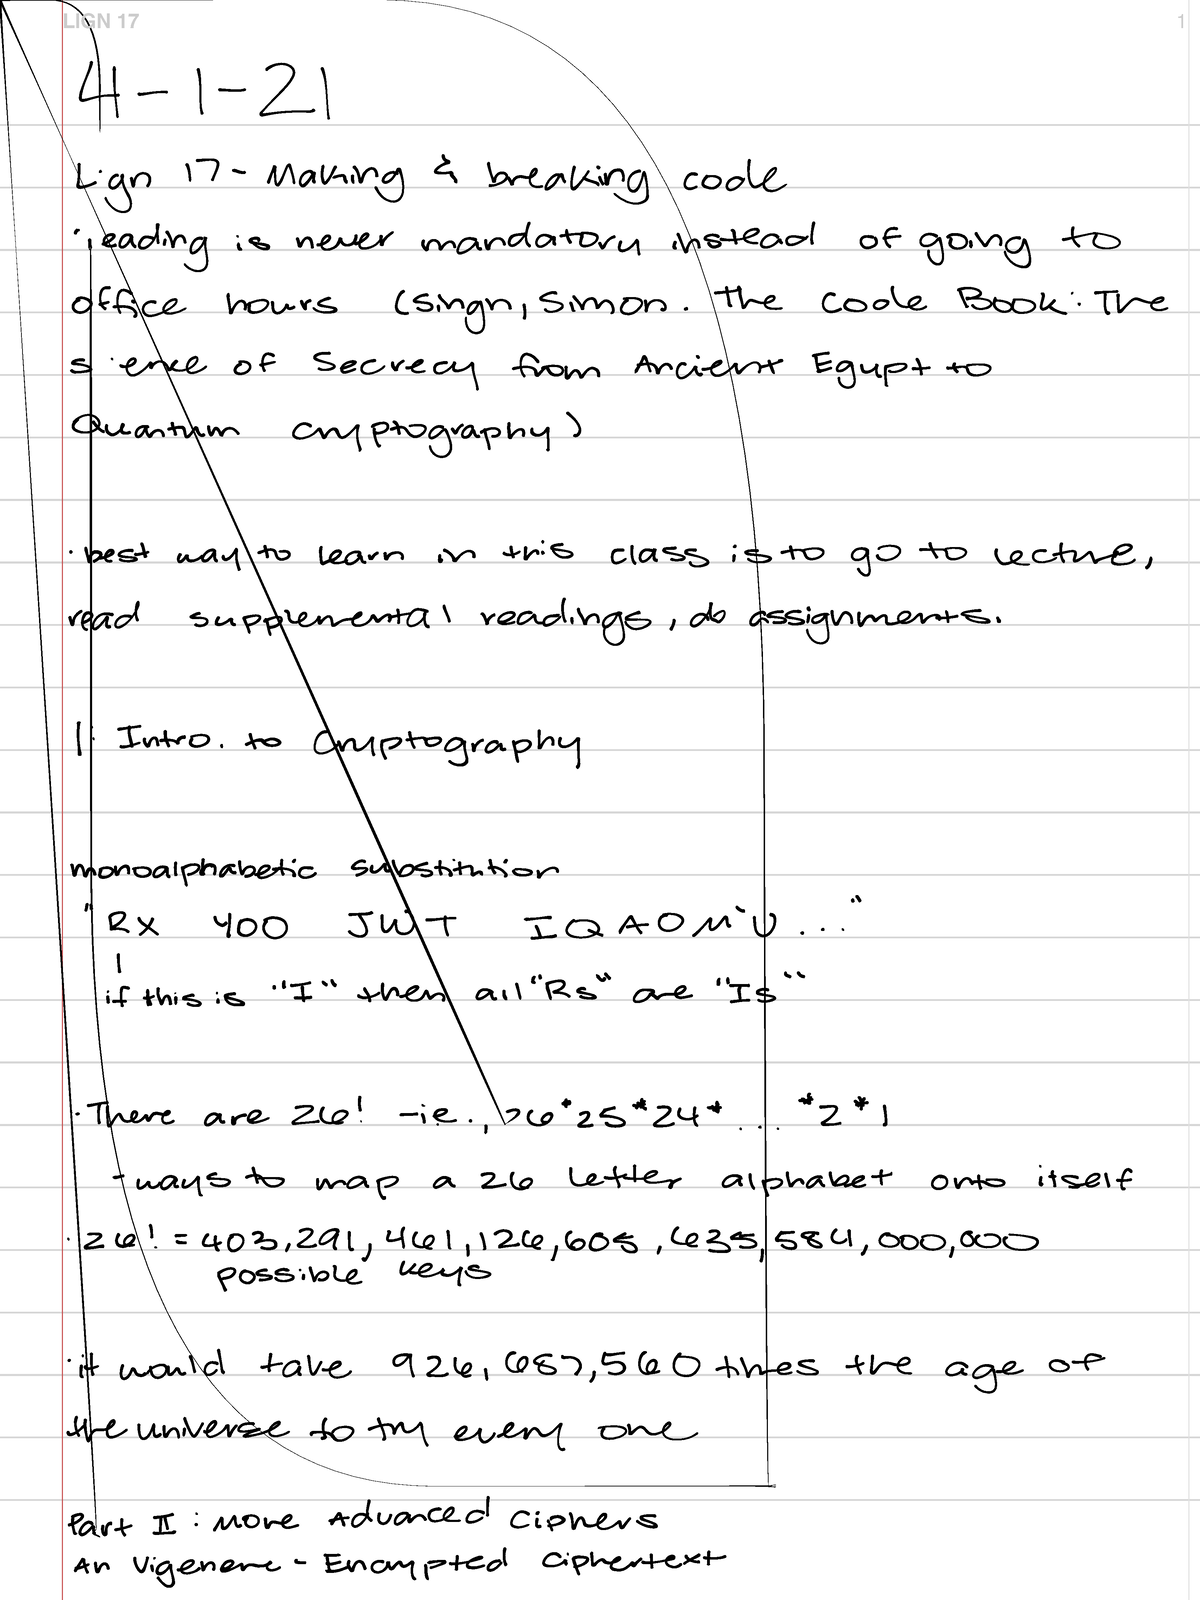 LIGN 17
1
4-1-21
Lign 17 - Making & breaking code
· reading is never mandatory instead of going to
office hours (Singn, Simon. The Code Book: The
sience of Secrecy from Ancient Egypt to
Quantum Cryptography)
· best way to learn in this class is to go to lecture,
read supplemental readings, do assignments.
1: Intro. to Cryptography
monoalphabetic substitution
"RX 400 JWT IQAOM'U ..."
if this is "I" then all "Rs" are "Is"
· There are 26! -ie., 26*25*24* ... *2*1
- ways to map a 26 letter alphabet onto itself
· 26! = 403,291,461,126,605,635,584,000,000
possible keys
· it would take 926,687,560 times the age of
the universe to try every one
Part II : More Advanced Ciphers
An Vigenere - Encrypted Ciphertext